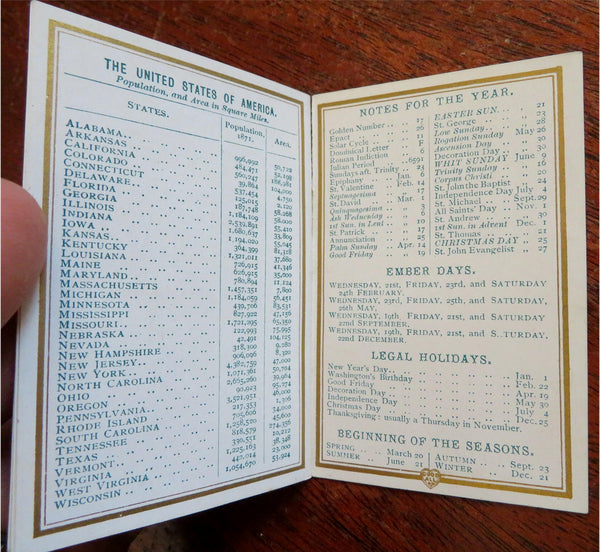 THE UNITED STATES OF AMERICA.
Population, and Area in Square Miles.
STATES. Population, 1871. Area.
ALABAMA 996,992 50,722
ARKANSAS 484,471 52,198
CALIFORNIA 560,247 188,981
COLORADO 39,864 104,500
CONNECTICUT 537,454 4,674
DELAWARE 125,015 2,120
FLORIDA 187,748 59,268
GEORGIA 1,184,109 58,000
ILLINOIS 2,539,891 55,410
INDIANA 1,680,637 33,809
IOWA 1,191,792 55,045
KANSAS 364,399 81,318
KENTUCKY 1,321,011 37,680
LOUISIANA 726,915 41,346
MAINE 626,915 35,000
MARYLAND 780,894 11,124
MASSACHUSETTS 1,457,351 7,800
MICHIGAN 1,184,059 56,451
MINNESOTA 439,706 83,531
MISSISSIPPI 827,922 47,156
MISSOURI 1,721,295 65,350
NEBRASKA 122,993 75,995
NEVADA 42,491 104,125
NEW HAMPSHIRE 318,300 9,280
NEW JERSEY 906,096 8,320
NEW YORK 4,382,759 47,000
NORTH CAROLINA 1,071,361 50,704
OHIO 2,665,260 39,964
OREGON 90,923 95,274
PENNSYLVANIA 3,521,951 46,000
RHODE ISLAND 217,353 1,306
SOUTH CAROLINA 705,606 34,000
TENNESSEE 1,258,520 45,600
TEXAS 818,579 274,356
VERMONT 330,551 10,212
VIRGINIA 1,225,163 38,348
WEST VIRGINIA 442,014 23,000
WISCONSIN 1,054,670 53,924
NOTES FOR THE YEAR.
Golden Number 17
Epact 26
Solar Cycle 11
Dominical Letter F
Roman Indiction 6
Julian Period 6591
Sundays aft. Trinity 23
Epiphany Jan. 6
St. Valentine Feb. 14
Septuagesima " 17
St. David Mar. 1
Quinquagesima " 3
Ash Wednesday " 6
1st Sun. in Lent " 10
St. Patrick " 17
Annunciation " 25
Palm Sunday Apr. 14
Good Friday " 19
EASTER SUN. " 21
St. George " 23
Low Sunday " 28
Rogation Sunday May 26
Ascension Day " 30
Decoration Day " 30
WHIT SUNDAY June 9
Trinity Sunday " 16
Corpus Christi " 20
St. John the Baptist " 24
Independence Day July 4
St. Michael Sept. 29
All Saints' Day Nov. 1
St. Andrew " 30
1st Sun. in Advent Dec. 1
St. Thomas " 21
CHRISTMAS DAY " 25
St. John Evangelist " 27
EMBER DAYS.
WEDNESDAY, 21st, FRIDAY, 23rd, and SATURDAY
24th FEBRUARY.
WEDNESDAY, 23rd, FRIDAY, 25th, and SATURDAY,
26th MAY.
WEDNESDAY, 19th, FRIDAY, 21st, and SATURDAY
22nd SEPTEMBER.
WEDNESDAY, 19th, FRIDAY, 21st, and S..TURDAY.
22nd DECEMBER.
LEGAL HOLIDAYS.
New Year's Day Jan. 1
Washington's Birthday Feb. 22
Good Friday Apr. 19
Decoration Day May 30
Independence Day July 4
Christmas Day Dec. 25
Thanksgiving: usually a Thursday in November.
BEGINNING OF THE SEASONS.
SPRING March 20 AUTUMN Sept. 23
SUMMER June 21 WINTER Dec. 21